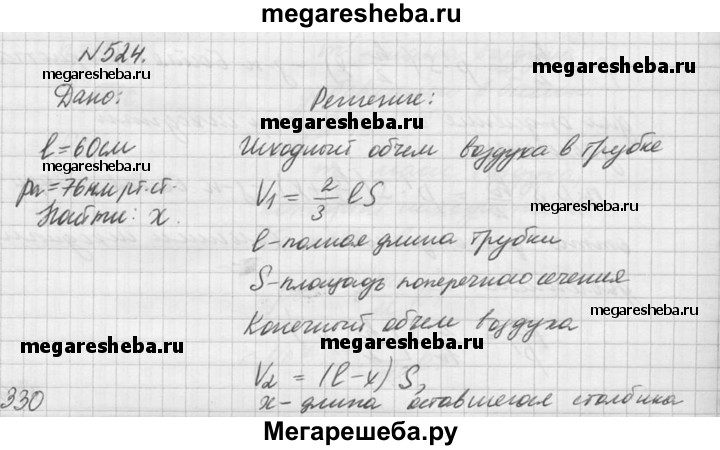 megaresheba.ru
№524.
megaresheba.ru
megaresheba.ru
Дано:
Решение:
megaresheba.ru
l=60см
Исходный объем воздуха в трубке
pa=76мм рт.ст.
Найти: x.
V₁ = 2/3 lS
l-полная длина трубки
S-площадь поперечного сечения
megaresheba.ru
Конечный объем воздуха
megaresheba.ru
megaresheba.ru
V₂ = (l-x) S,
330
x-длина оставшегося столбика
Мегарешеба.ру